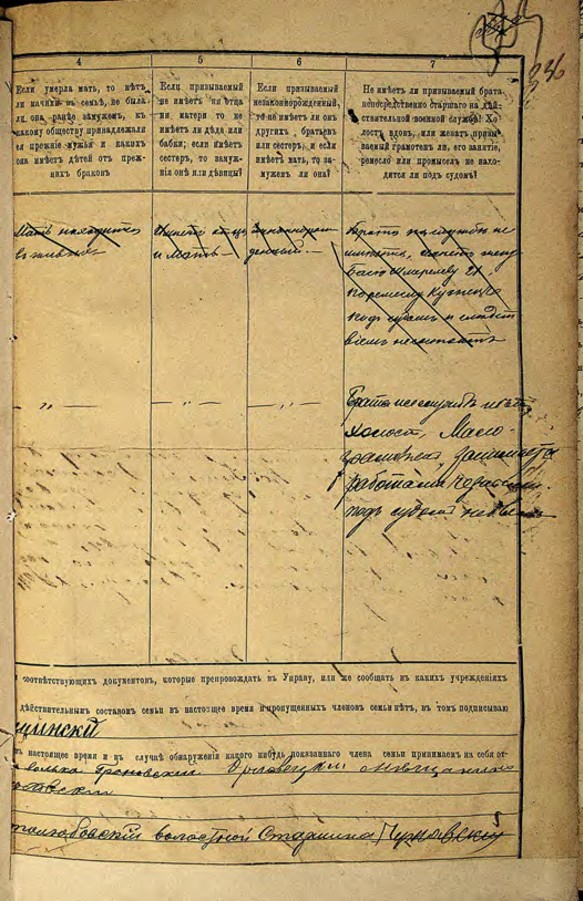 236
4 5 6 7
Если умерла мать, то нѣтъ
ли мачихи въ семьѣ, не была
ли она ранѣе замужемъ, къ
какому обществу принадлежали
ея прежніе мужья и какихъ
она имѣетъ дѣтей отъ преж-
нихъ браковъ
Если призываемый
не имѣетъ ни отца
ни матери то не
имѣетъ ли дѣда или
бабки; если имѣетъ
сестеръ, то замуж-
нія онѣ или дѣвицы?
Если призываемый
незаконнорожденный,
то не имѣетъ ли онъ
другихъ братьевъ
или сестеръ, и если
имѣетъ мать, то за-
мужемъ ли она?
Не имѣетъ ли призываемый брата
непосредственно старшаго на дѣй-
ствительной военной службѣ? Хо-
лостъ, вдовъ, или женатъ призы-
ваемый грамотенъ ли, его занятіе,
ремесло или промыселъ не нахо-
дится ли подъ судомъ?
Мать находится
въ живыхъ
Имѣетъ отца
и мать
Законнорож
денный
Брата на службѣ не
имѣетъ, имѣетъ жену
21,
по ремеслу Кузнецъ
подъ судомъ и слѣдст
віемъ не состоитъ
— " — — " — — " —
Брата на службѣ нѣтъ
холостъ, Мало-
грамотенъ, занимается
работами
подъ судомъ не былъ
соотвѣтствующихъ документовъ, которые препровождать въ Управу, или же сообщать въ какихъ учрежденіяхъ
дѣйствительнымъ составомъ семьи въ настоящее время и пропущенныхъ членовъ семьи нѣтъ, въ томъ подписываю
щинскій
въ настоящее время и въ случаѣ обнаруженія какого нибудь показаннаго члена семьи принимаемъ на себя от-
волостной Старшина